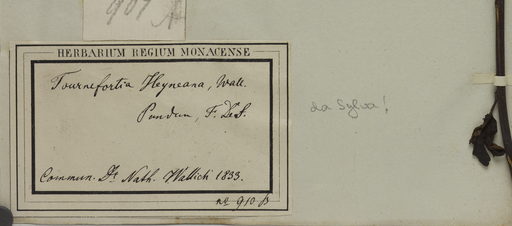 907 A
HERBARIUM REGIUM MONACENSE
Tournefortia Heyneana, Wall.
Pundua, F. DeS.
da Sylva!
Commun. Dr. Nath. Wallich 1833.
no. 910 B